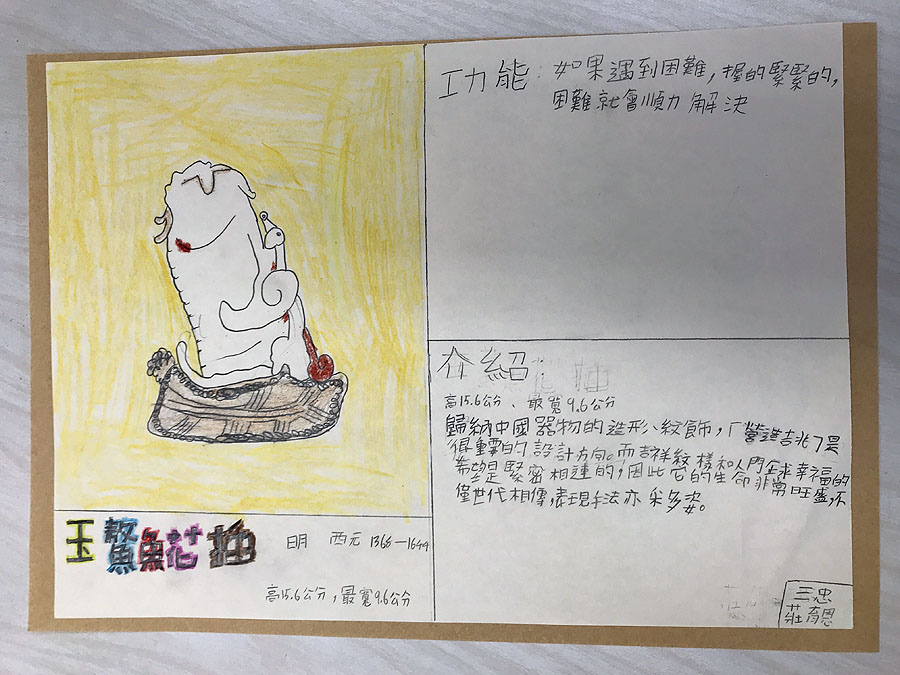 功能：如果遇到困難，握的緊緊的，
困難就會順力解決
介紹：
高15.6公分、最寬9.6公分
歸納中國器物的造形、紋飾，「營造吉兆」是
很重要的設計方向。而吉祥紋樣和人們企求幸福的
希望是緊密相連的，因此它的生命非常旺盛，不
僅世代相傳，表現手法亦采多次。
玉鰲魚花插
明 西元1366—1644
高15.6公分，最寬9.6公分
三忠
莊育恩